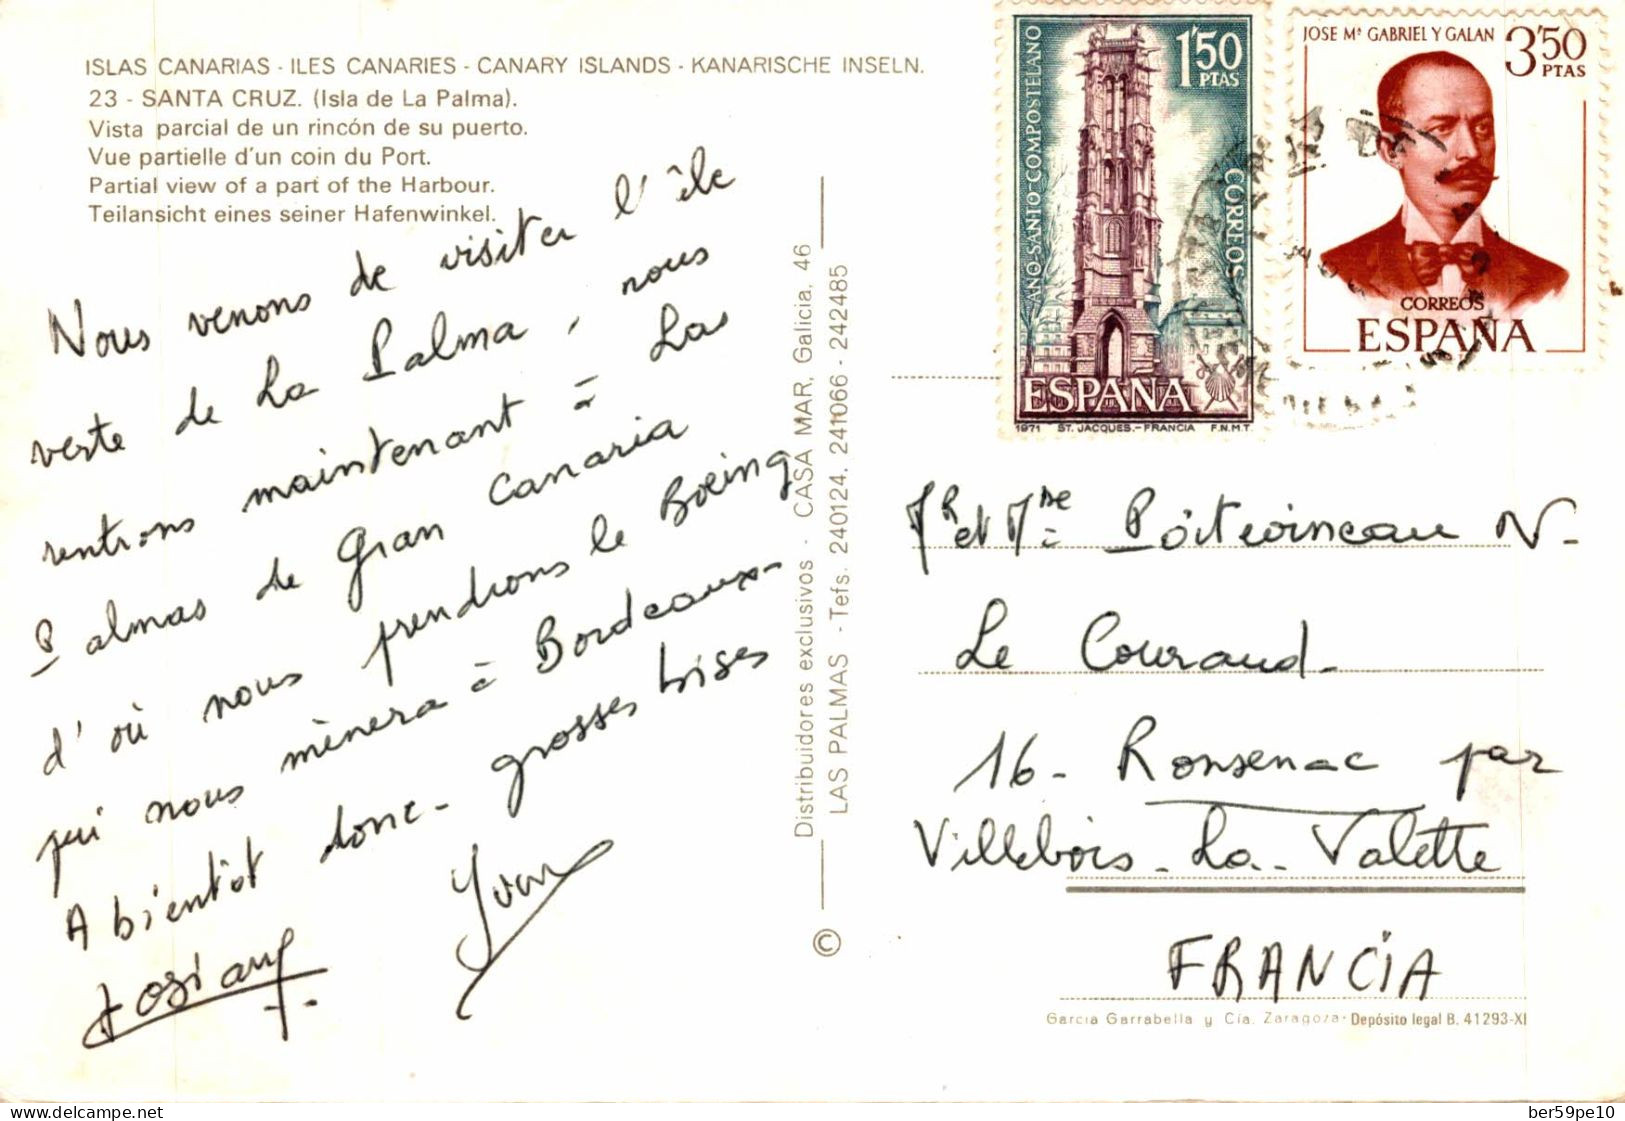 ISLAS CANARIAS - ILES CANARIES - CANARY ISLANDS - KANARISCHE INSELN.
23 - SANTA CRUZ. (Isla de La Palma).
Vista parcial de un rincón de su puerto.
Vue partielle d'un coin du Port.
Partial view of a part of the Harbour.
Teilansicht eines seiner Hafenwinkel.
Nous venons de visiter l'île
verte de La Palma, nous
rentrons maintenant à Las
Palmas de Gran Canaria
d'où nous prendrons le Boeing
qui nous mènera à Bordeaux-
A bientôt donc - grosses bises
Josiane
Yvon
Distribuidores exclusivos - CASA MAR, Galicia, 46
LAS PALMAS - Tefs. 240124, 241066 - 242485
©
AÑO SANTO COMPOSTELANO
1'50
PTAS
CORREOS
ESPAÑA
1971 ST. JACQUES.-FRANCIA F.N.M.T.
JOSE Mª GABRIEL Y GALAN
3'50
PTAS
CORREOS
ESPAÑA
Mr et Mme Poitevineau N-
Le Couraud-
16- Ronsenac par
Villebois-La-Valette
FRANCIA
Garcia Garrabella y Cía. Zaragoza - Depósito legal B. 41293-XI
delcampe.net
ber59pe10